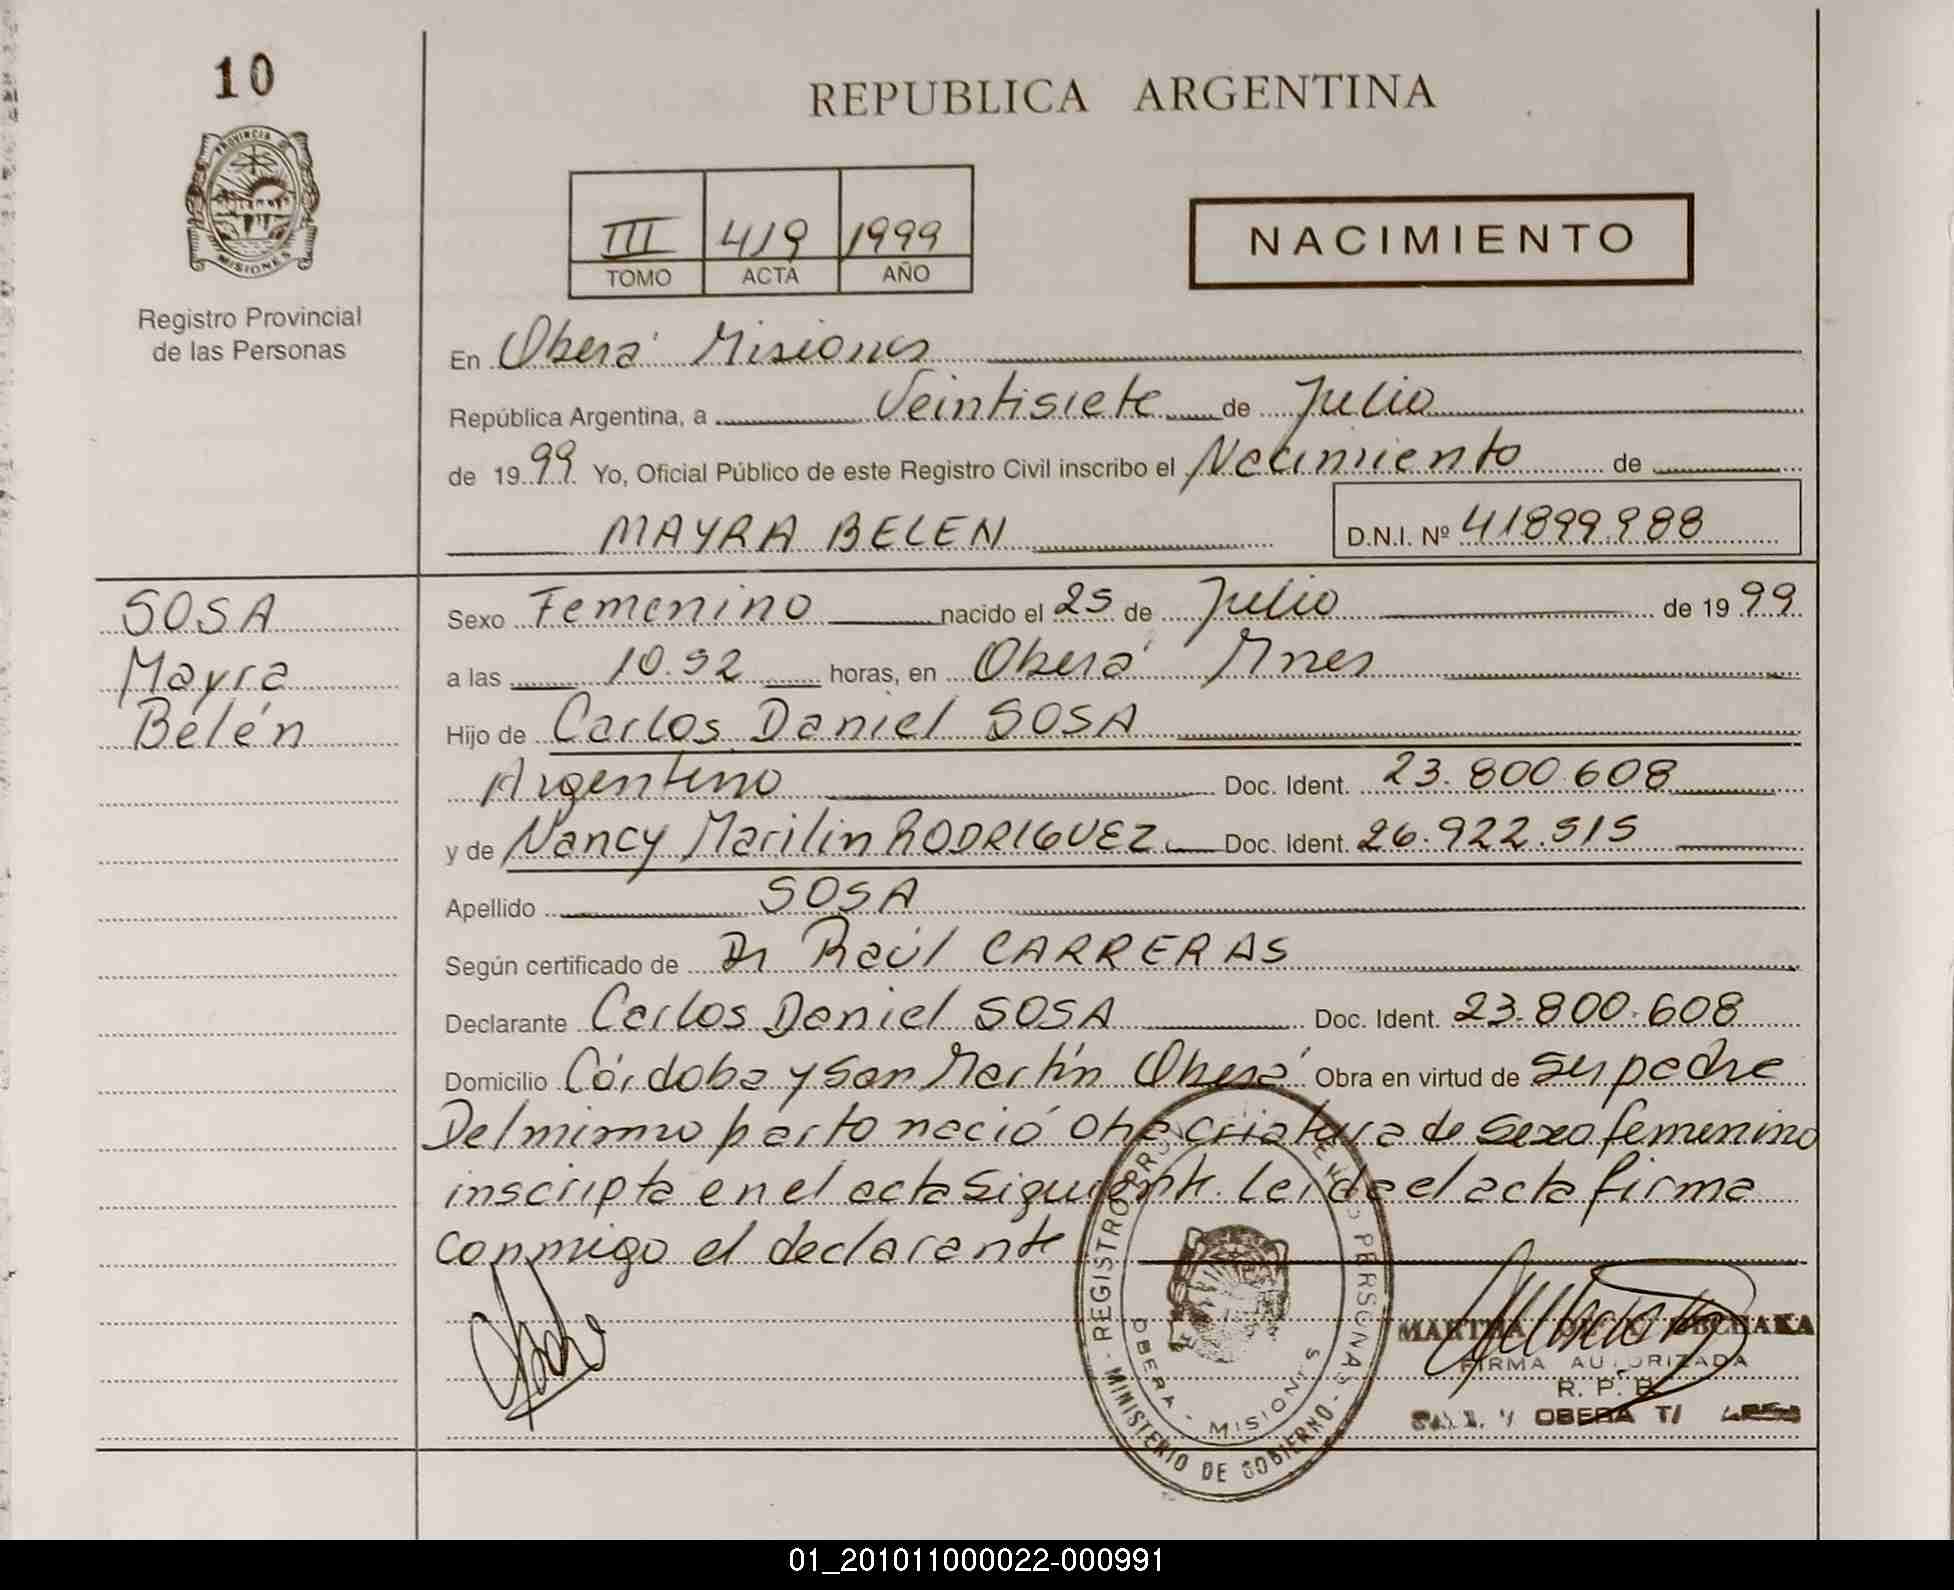 10
REPUBLICA ARGENTINA
PROVINCIA DE
MISIONES
III 419 1999
TOMO ACTA AÑO
NACIMIENTO
Registro Provincial
de las Personas
En Oberá Misiones
República Argentina, a Veintisiete de Julio
de 1999 Yo, Oficial Público de este Registro Civil inscribo el Nacimiento de
MAYRA BELEN D.N.I. Nº 41899.988
SOSA
Mayra
Belén
Sexo Femenino nacido el 25 de Julio de 1999
a las 10.52 horas, en Oberá Mnes
Hijo de Carlos Daniel SOSA
Argentino Doc. Ident. 23.800.608
y de Nancy Marilin RODRIGUEZ Doc. Ident. 26.922.515
Apellido SOSA
Según certificado de Dr Raúl CARRERAS
Declarante Carlos Daniel SOSA Doc. Ident. 23.800.608
Domicilio Córdoba y San Martín Oberá Obra en virtud de ser padre
Del mismo parto nació otra criatura de sexo femenino
inscripta en el acta siguiente. Leída el acta firma
conmigo el declarante
REGISTRO PERSONAS
MINISTERIO DE GOBIERNO
OBERA - MISIONES
MARTHA
FIRMA AUTORIZADA
R. P.
OBERA
01_201011000022-000991